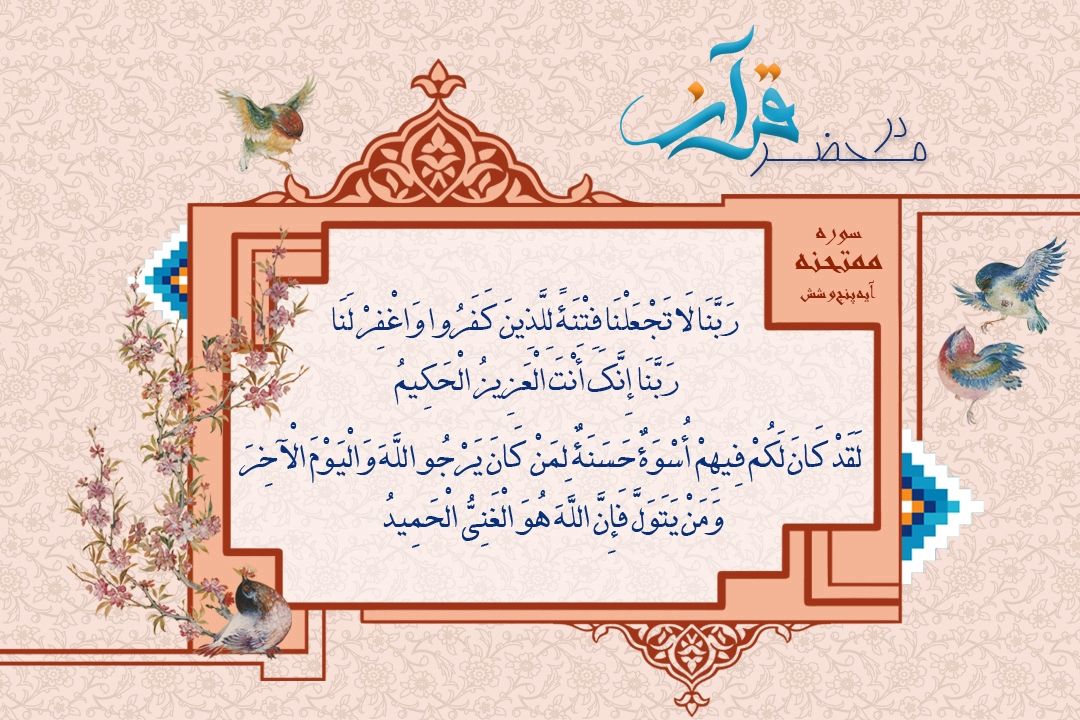 در محضر قرآن
سوره
ممتحنه
آیه پنج و شش
رَبَّنَا لَا تَجْعَلْنَا فِتْنَةً لِلَّذِينَ كَفَرُوا وَاغْفِرْ لَنَا
رَبَّنَا إِنَّکَ أَنْتَ الْعَزِيزُ الْحَكِيمُ
لَقَدْ كَانَ لَكُمْ فِيهِمْ أُسْوَةٌ حَسَنَةٌ لِمَنْ كَانَ يَرْجُو اللَّهَ وَالْيَوْمَ الْآخِرَ
وَمَنْ يَتَوَلَّ فَإِنَّ اللَّهَ هُوَ الْغَنِیُّ الْحَمِيدُ